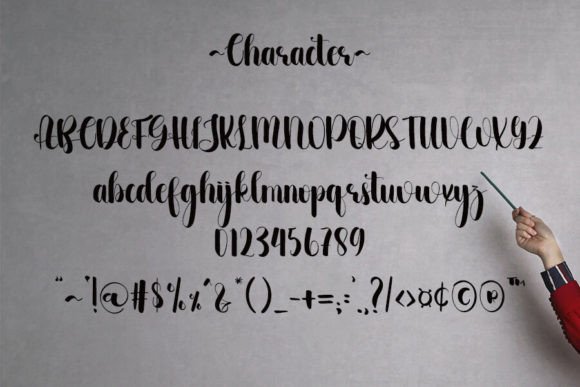 ~Character~
ABCDEFGHIJKLMNOPQRSTUVWXYZ
abcdefghijklmnopqrstuvwxyz
0123456789
"~'!@#$%^&*()_-+=;:.,?/<>¤¢©®™